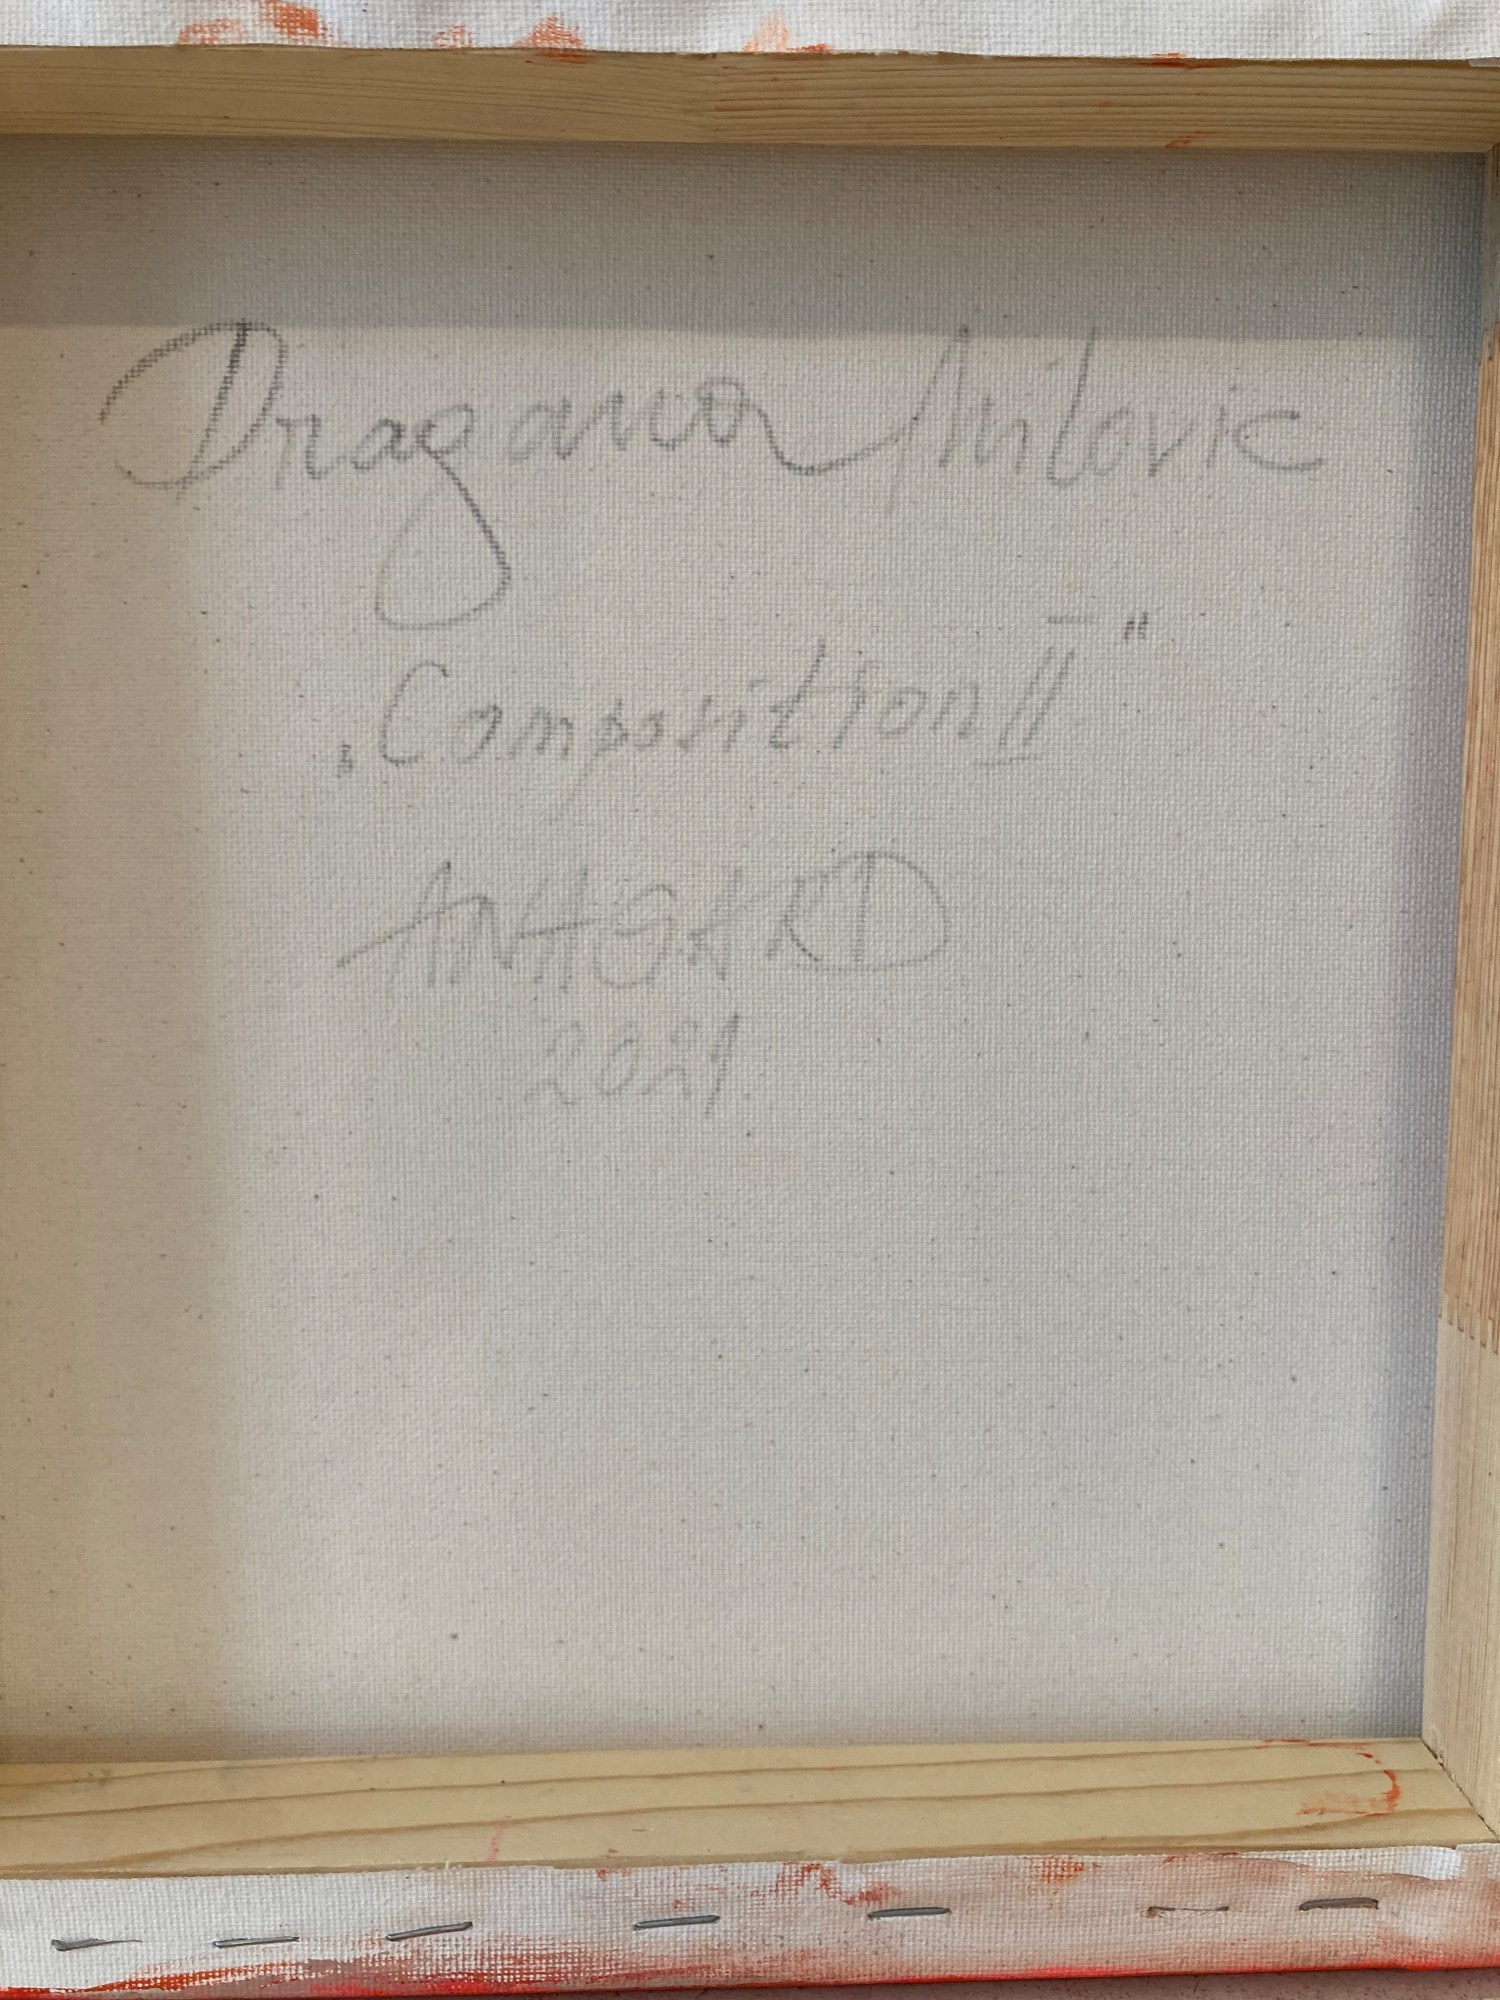 Dragana Milovic
„Composition II"
ANHGARD
2021.